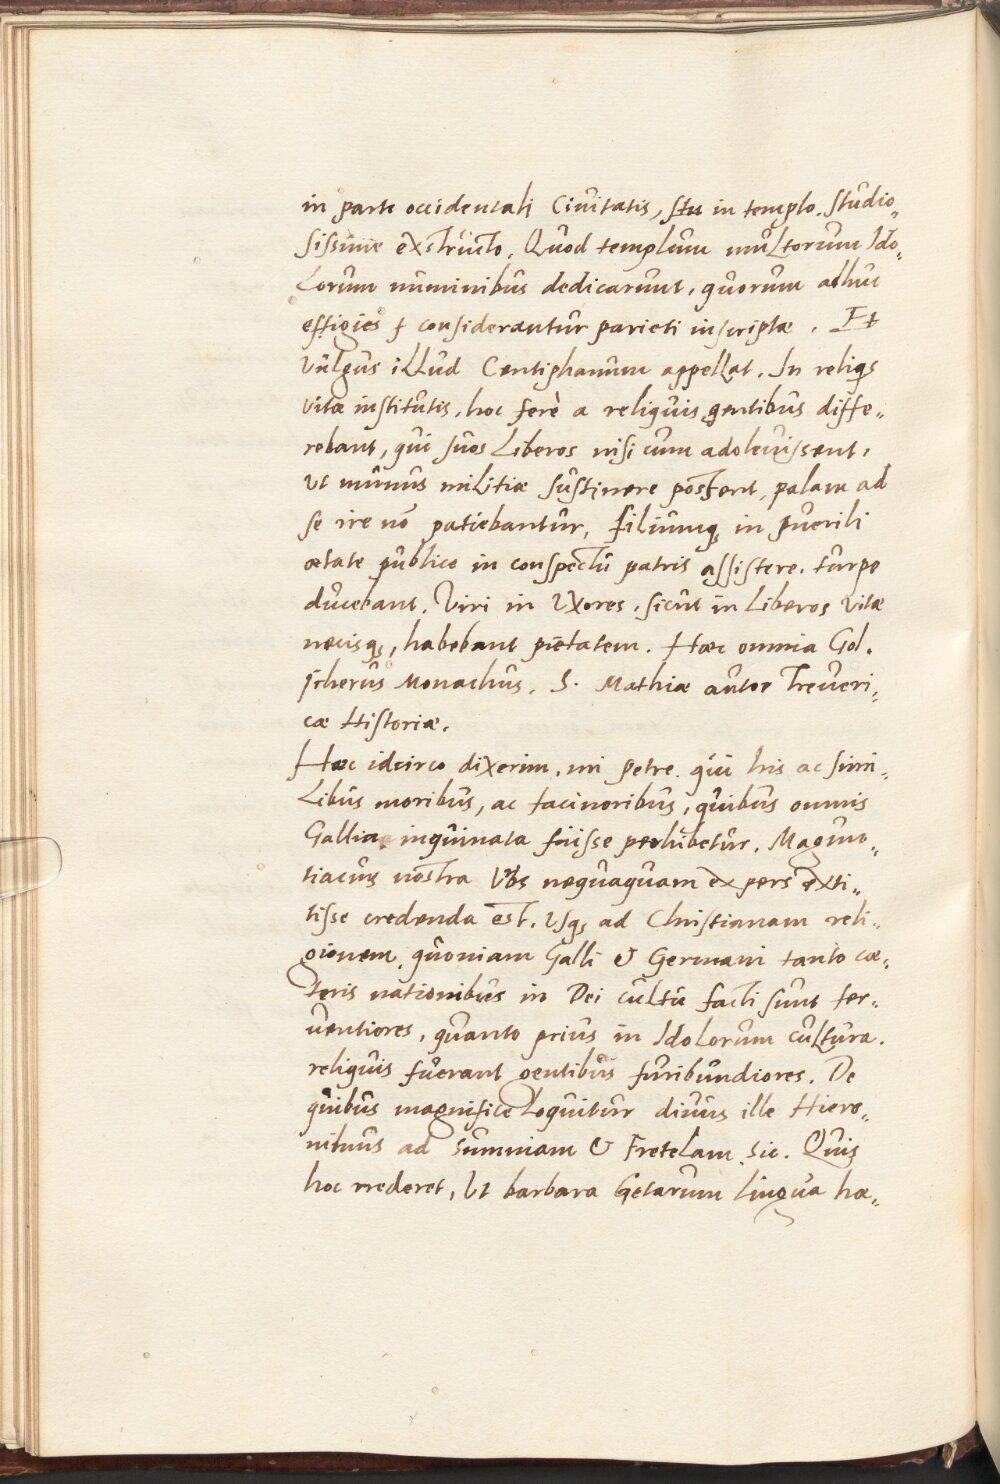 in parte occidentali Ciuitatis, stu in templo. studio„
sissime exstructo. Quod templum multorum Ido„
Lorum numinibus dedicarunt, quorum adhuc
effigies considerantur parieti inscriptæ. Et
vulgus illud Centiphanum appellat. In reliqs
vitæ institutis, hoc ferè a reliquis gentibus diffe„
rebant, qui suos Liberos nisi cum adoleuissent,
vt munus militiæ sustinere possent, palam ad
se ire nõ patiebantur, filiumq; in puerili
ætate publico in conspectu patris assistere. turpe
ducebant. Viri in vxores, sicut in Liberos vitæ
necisq;, habebant pietatem. Hæc omnia Gol.
scherus Monachus. S. Mathiæ autor Treueri„
cæ Historiæ.
Hæc idcirco dixerim, mi petre. qui his ac simi„
Libus moribus, ac facinoribus, quibus omnis
Gallia inquinata fuisse perhibetur. Magun„
tiacus nostra Vrbs nequaquam expers exti„
tisse credenda est. vsq; ad Christianam reli„
gionem, quoniam Galli & Germani tanto cæ„
teris nationibus in Dei cultu facti sunt fer„
uentiores, quanto prius in Idolorum cultura.
reliquis fuerant gentibus furibundiores. De
quibus magnifice Loquitur diuus ille Hiero„
nimus ad Summiam & Fretelam. sic. Quis
hoc crederet, vt barbara Getarum Lingua hæ„